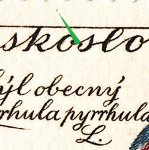 skoslo
ýl obecný
rrhula pyrrhula
L.